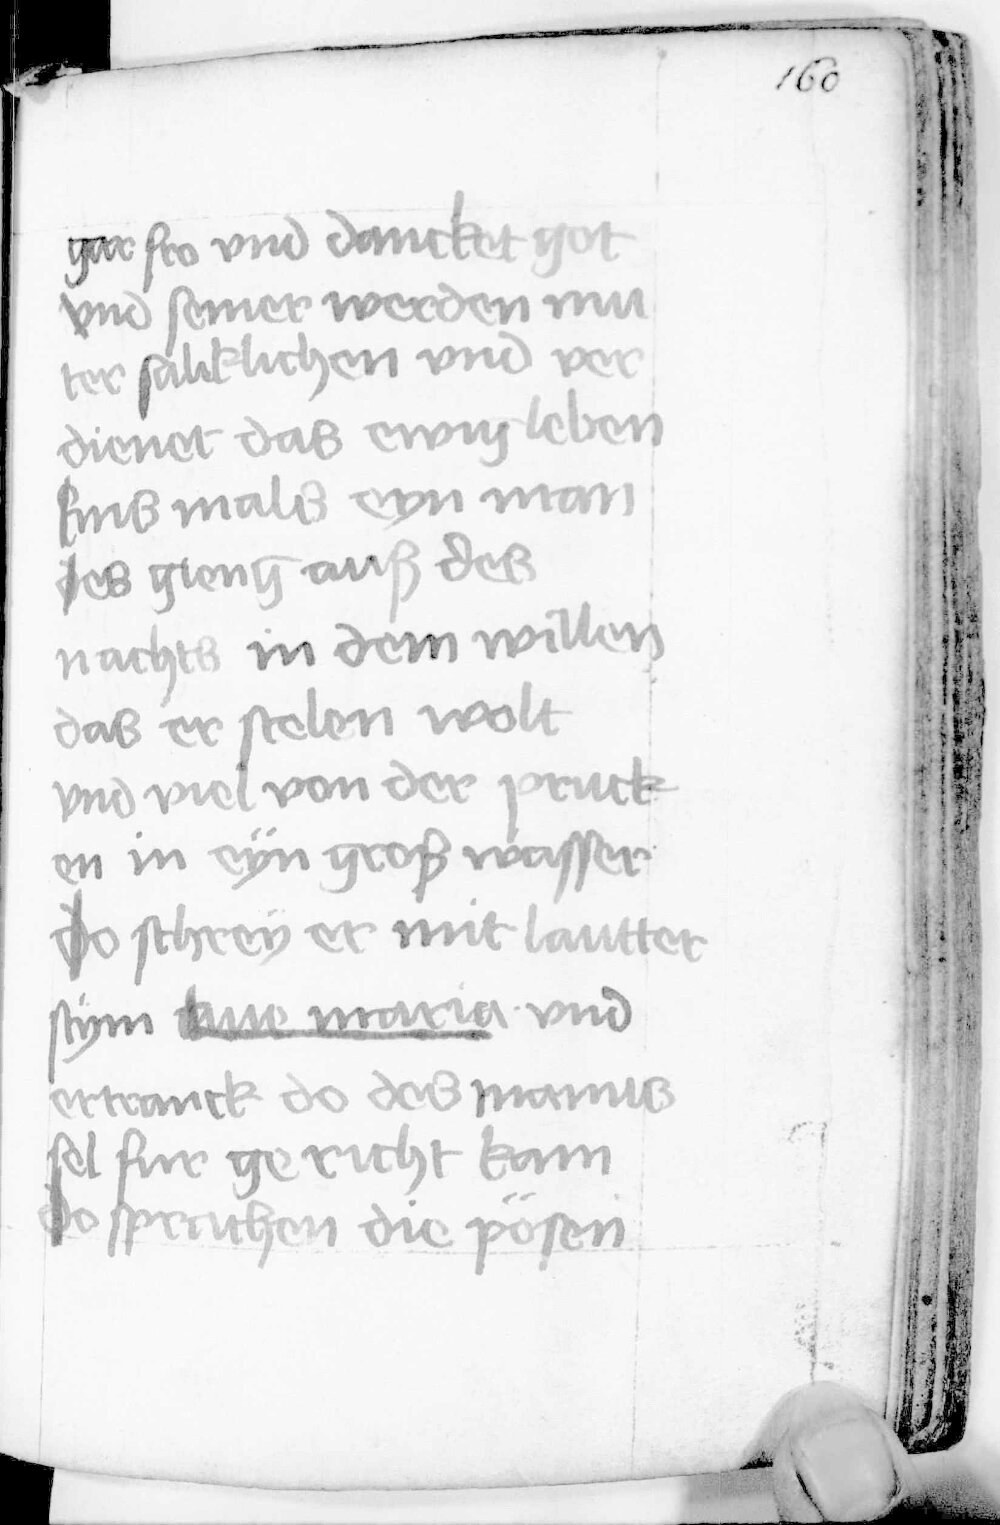 160
gar fro vnd dancket got
vnd seiner werden mu
ter säliklichen vnd ver
dienet das ewig leben
Eins mals eyn man
des gieng auß des
nachts in dem willen
das er stelen wolt
vnd viel von der pruck
en in eÿn groß wasser
do schreÿ er mit lautter
stÿm Aue maria vnd
ertranck do des manns
sel fur gericht kam
do sprachen die pösen